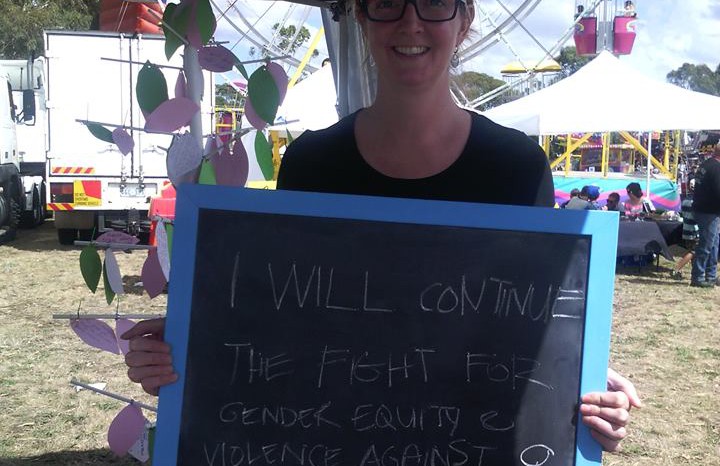 I WILL CONTINUE
THE FIGHT FOR
GENDER EQUITY &
VIOLENCE AGAINST ♀